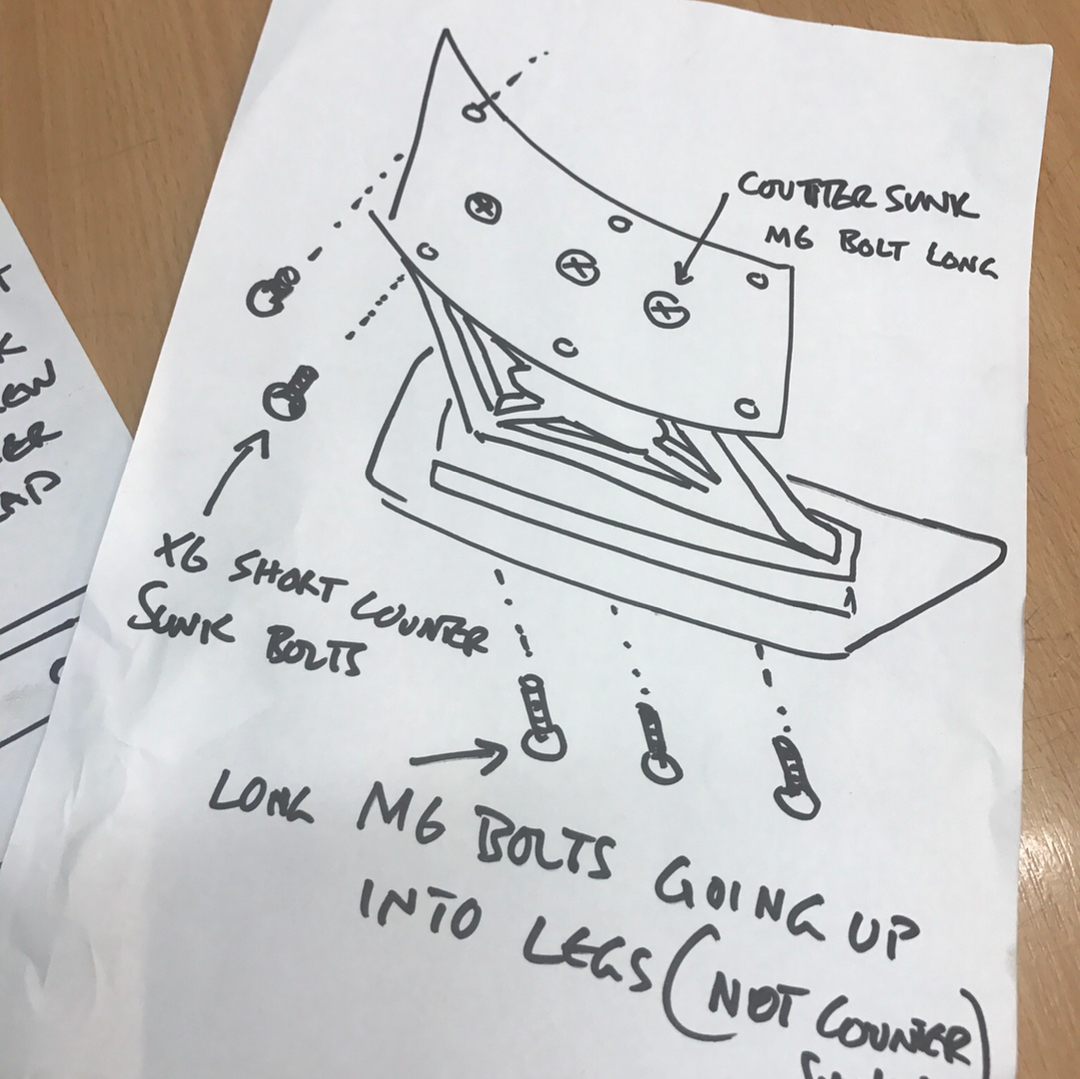 COUTTER SUNK
M6 BOLT LONG
X6 SHORT COUNTER
SUNK BOLTS
LONG M6 BOLTS GOING UP
INTO LEGS (NOT COUNTER)